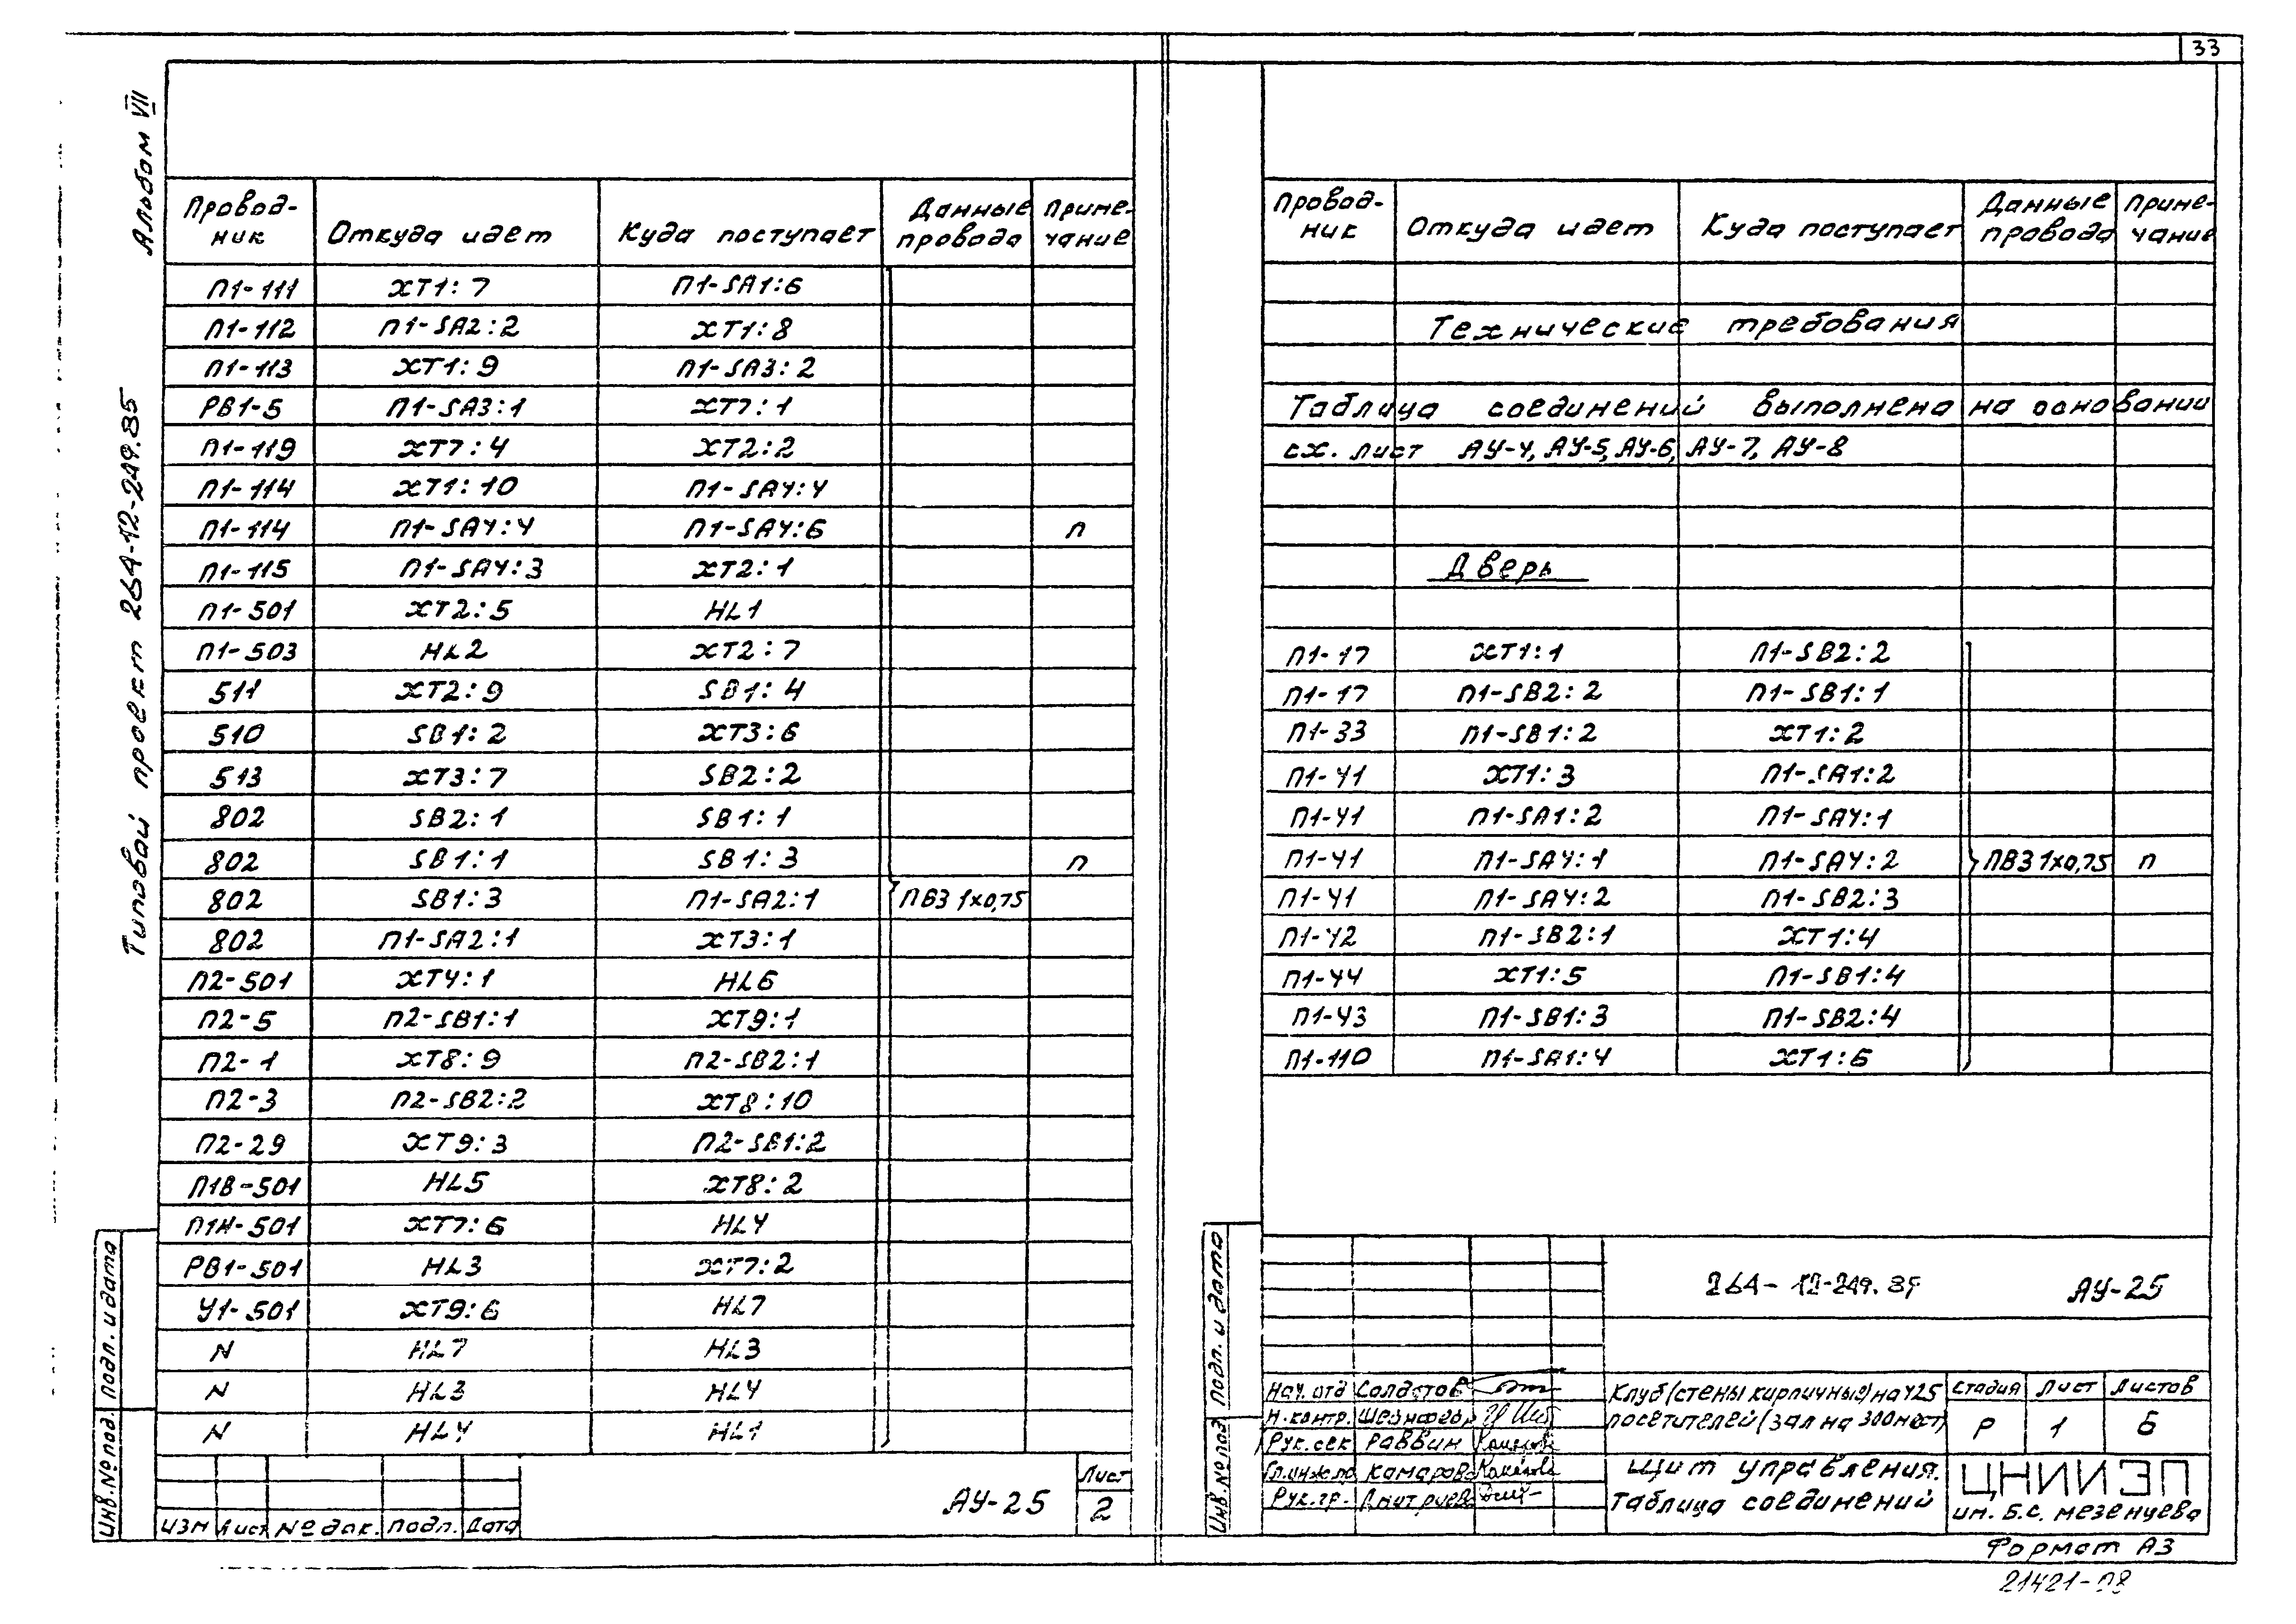 33
Альбом VII
Типовой проект 264-12-249.85
Провод-ник Откуда идет Куда поступает Данные провода Приме-чание
П1-111 ХТ1:7 П1-SA1:6
П1-112 П1-SA2:2 ХТ1:8
П1-113 ХТ1:9 П1-SA3:2
РВ1-5 П1-SA3:1 ХТ7:1
П1-119 ХТ7:4 ХТ2:2
П1-114 ХТ1:10 П1-SA4:4
П1-114 П1-SA4:4 П1-SA4:6 п
П1-115 П1-SA4:3 ХТ2:1
П1-501 ХТ2:5 HL1
П1-503 HL2 ХТ2:7
511 ХТ2:9 SB1:4
510 SB1:2 ХТ3:6
513 ХТ3:7 SB2:2
802 SB2:1 SB1:1
802 SB1:1 SB1:3 п
802 SB1:3 П1-SA2:1 ПВ3 1х0,75
802 П1-SA2:1 ХТ3:1
П2-501 ХТ4:1 HL6
П2-5 П2-SB1:1 ХТ9:1
П2-1 ХТ8:9 П2-SB2:1
П2-3 П2-SB2:2 ХТ8:10
П2-29 ХТ9:3 П2-SB1:2
П1В-501 HL5 ХТ8:2
П1Н-501 ХТ7:6 HL4
РВ1-501 HL3 ХТ7:2
У1-501 ХТ9:6 HL7
N HL7 HL3
N HL3 HL4
N HL4 HL1
Изм Лист № док. Подп. Дата
АУ-25
Лист
2
Инв. № подл. Подп. и дата
Провод-ник Откуда идет Куда поступает Данные провода Приме-чание
Технические требования
Таблица соединений выполнена на основании
сх. лист АУ-4, АУ-5, АУ-6, АУ-7, АУ-8
Дверь
П1-17 ХТ1:1 П1-SB2:2
П1-17 П1-SB2:2 П1-SB1:1
П1-33 П1-SB1:2 ХТ1:2
П1-41 ХТ1:3 П1-SA1:2
П1-41 П1-SA1:2 П1-SA4:1
П1-41 П1-SA4:1 П1-SA4:2 ПВ3 1х0,75 п
П1-41 П1-SA4:2 П1-SB2:3
П1-42 П1-SB2:1 ХТ1:4
П1-44 ХТ1:5 П1-SB1:4
П1-43 П1-SB1:3 П1-SB2:4
П1-110 П1-SA1:4 ХТ1:6
Инв. № подл Подп. и дата
264-12-249.85 АУ-25
Нач. отд Солдатов
Н.контр.
Рук. сек Раввин
Гл.инж.пр Камарова
Рук. гр. Дмитриева
Клуб (стены кирпичные) на 425
посетителей (зал на 300 мест)
Стадия Лист Листов
Р 1 6
Щит управления.
Таблица соединений
ЦНИИЭП
им. Б.С. Мезенцева
Формат А3
21421-08